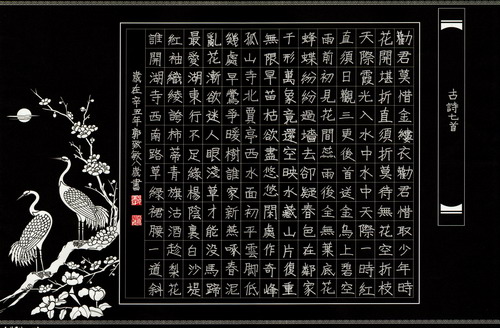 古詩七首
勸君莫惜金縷衣勸君惜取少年時
花開堪折直須折莫待無花空折枝
天際霞光入水中水中天際一時紅
直須日觀三更後首送金烏上碧空
雨前初見花間蕊雨後全無葉底花
蜂蝶紛紛過墻去卻疑春色在鄰家
千形萬象竟還空映水藏山片復重
無限旱苗枯欲盡悠悠閑處作奇峰
孤山寺北賈亭西水面初平雲脚低
幾處早鶯爭暖樹誰家新燕啄春泥
亂花漸欲迷人眼淺草才能没馬蹄
最愛湖東行不足綠楊陰裏白沙堤
紅袖織綾誇柿蒂青旗沽酒趁梨花
誰開湖寺西南路草綠裙腰一道斜
歲在辛丑年郭敬書